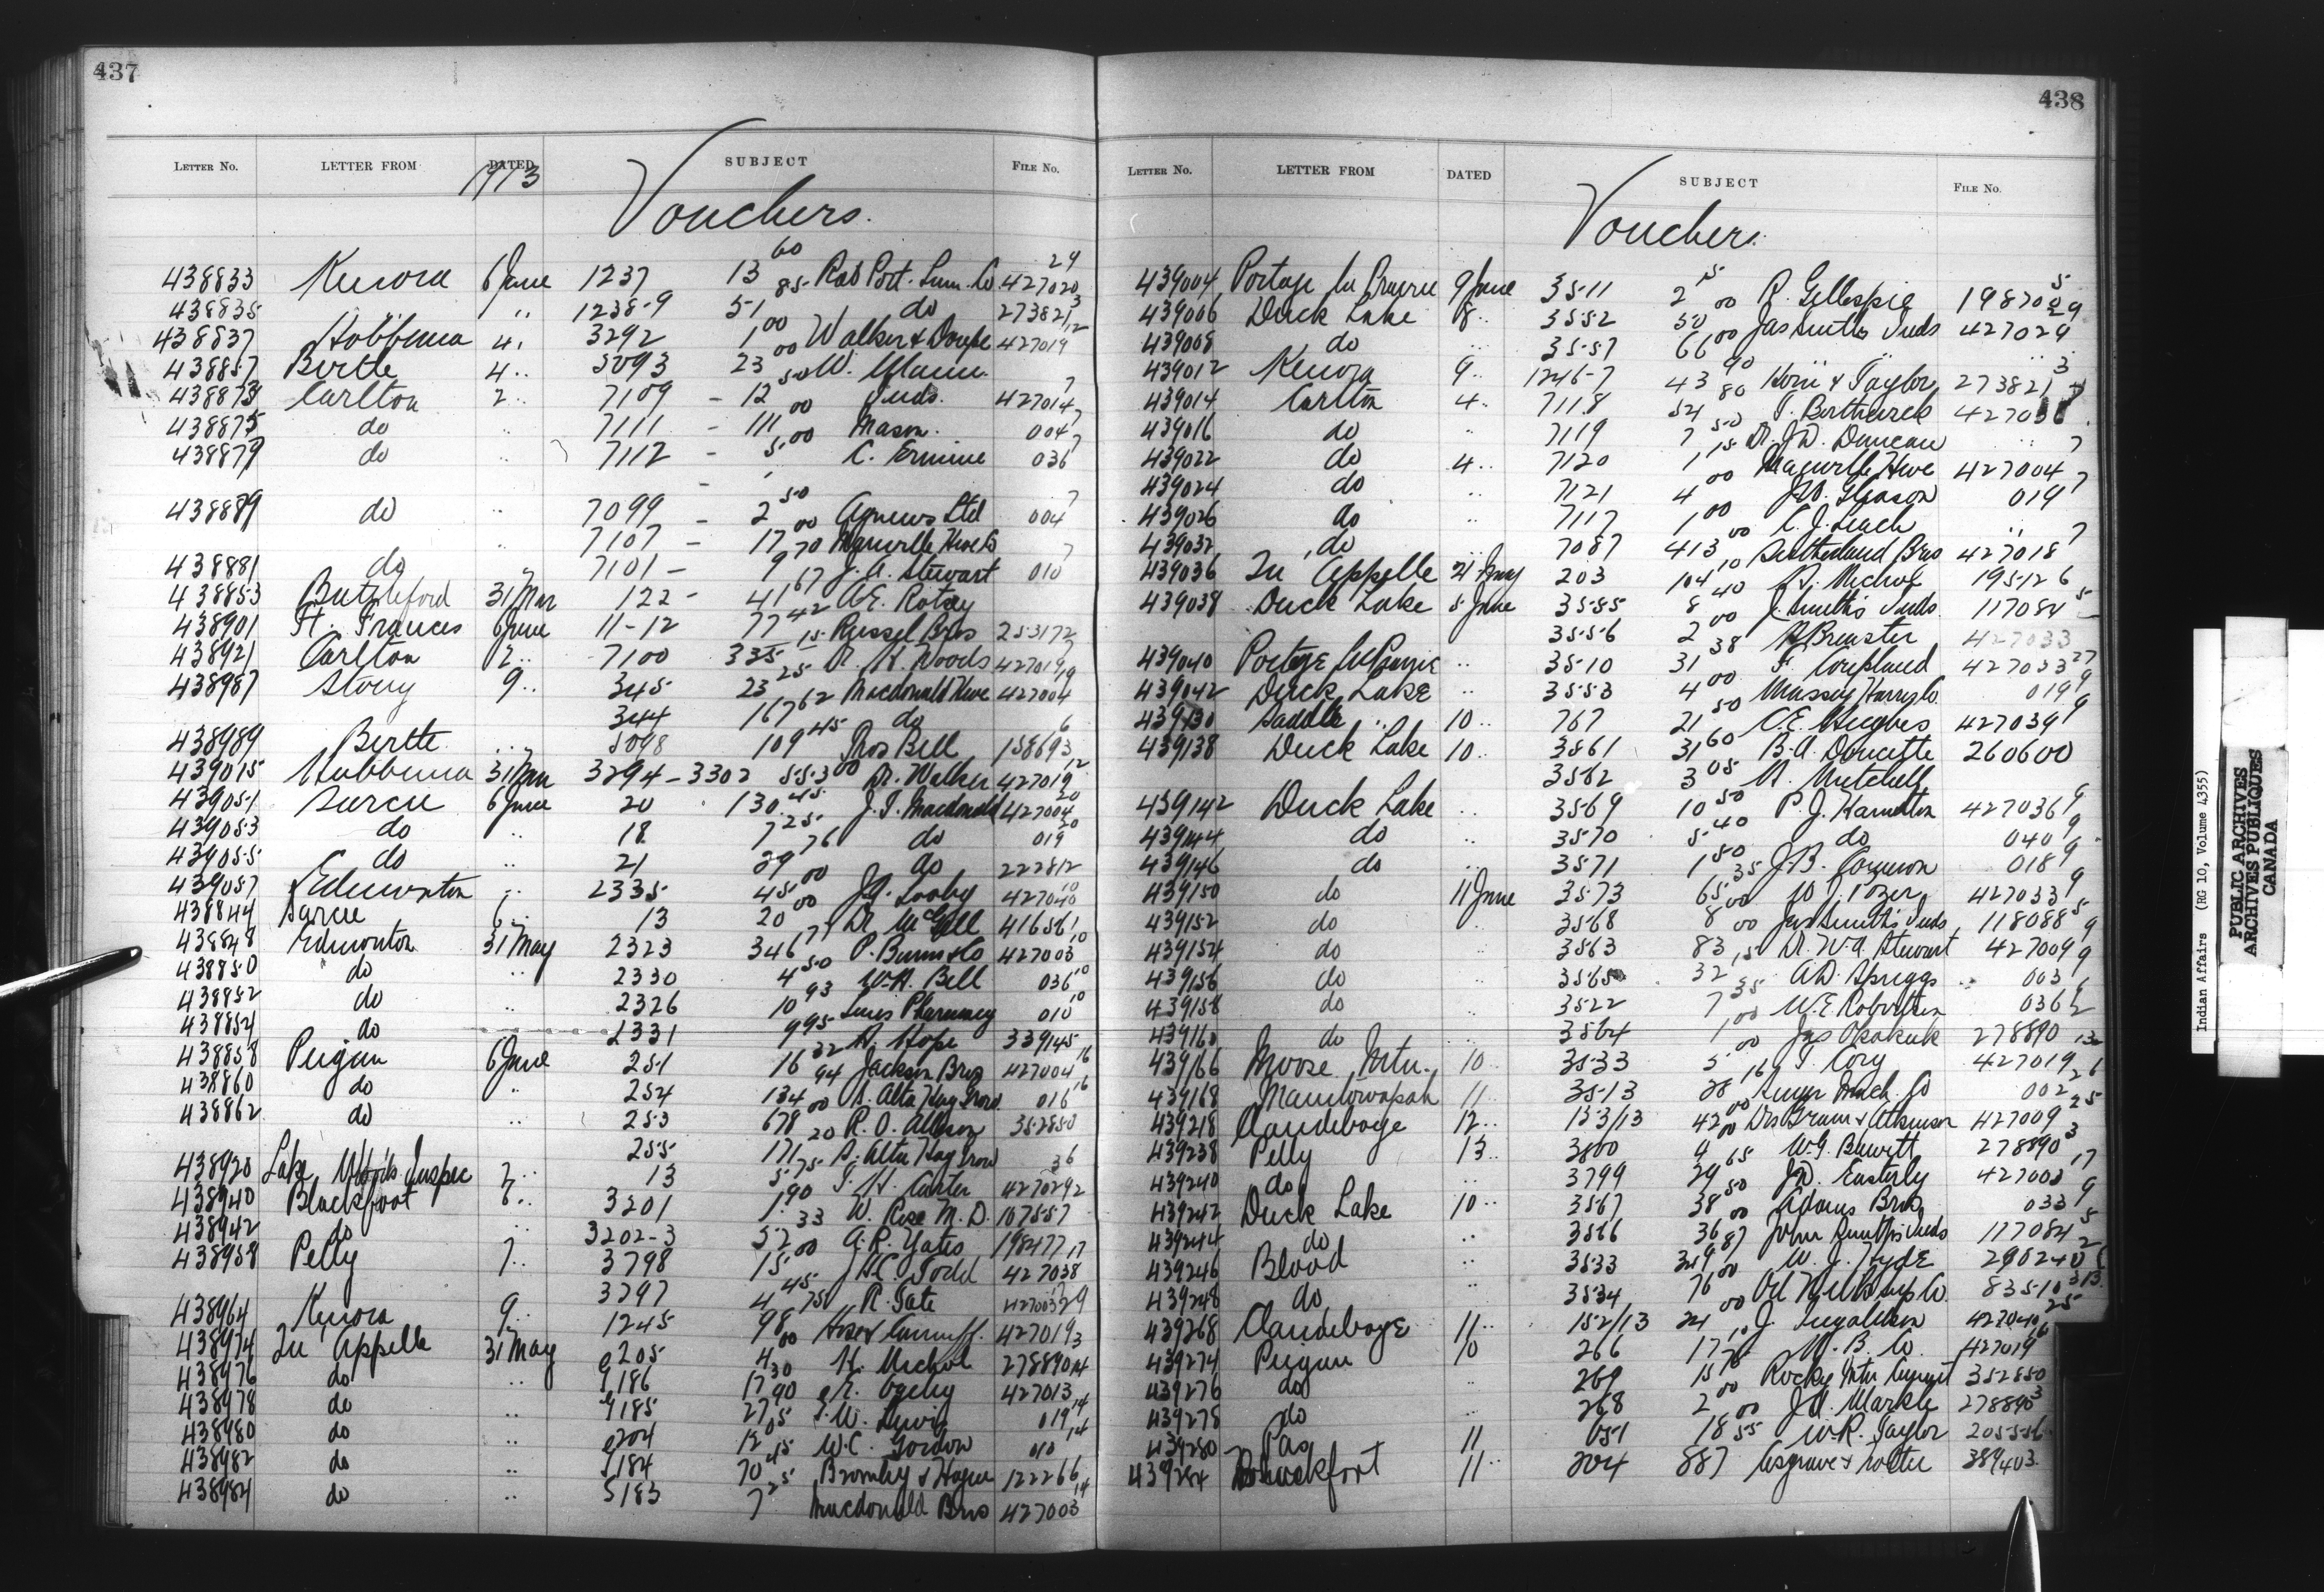 437
LETTER NO. LETTER FROM DATED SUBJECT FILE NO.
1913
Vouchers.
438833 Kenora 6 June 1237 13 60 Rat Port. Lum. Co 427020 24
438835 " 1238-9 51 85 do 273821 3
438837 Hobbema 4 " 3292 1 00 Walker & 427019 12
438857 Birtle 4 " 5093 23 00 W.
438873 Carlton 2 " 7109 - 12 50 Inds. 427014 7
438875 do " 7111 - 111 00 Mason. 004 7
438879 do 7112 - 5 00 C. Ermine 036 7
438889 do " 7099 - 2 50 Agnews Ltd 004 7
" 7107 - 17 00 Manville Hwe Co
438881 do " 7101 - 9 70 J. A. Stewart 010 7
438853 Battleford 31 Mar 122 - 41 67 A.E.
438901 Ft. Frances 6 June 11-12 77 42 Russel Bros 253172
438921 Carlton 2 " 7100 335 15 Dr. Woods 427019
438987 Stony 9 " 345 23 25 Macdonald Hwe 427004
344 167 62 do
438989 Birtle " 5098 109 45 Thos Bell 158693 6
439015 Hobbema 31 Mar 3294-3302 553 00 Dr. Walker 427019 12
439051 Sarcee 6 June 20 130 45 J. T. Macdonald 427004 20
439053 do " 18 7 25 do 019 20
439055 do " 21 29 76 do 222812
439057 Edmonton " 2335 45 00 J. Looby 427040 10
438844 Sarcee 6 " 13 20 00 Dr. McGill 416561
438848 Edmonton 31 May 2323 346 77 P. Burns & Co 427003 10
438850 do " 2330 4 50 W. H. Bell 036 10
438852 do " 2326 10 93 Pharmacy 010 10
438854 do 2331 9 95 Hope 339145
438858 Peigan 6 June 251 16 32 Jackson Bros 427004 16
438860 do " 254 134 94 S. Alta Hay Grow 016 16
438862 do 253 678 00 R. O. Allison 352850
255 171 20 S. Alta Hay Grow 36
438920 Lake Woods Inspec 7 " 13 5 75 T. H. Carter 427029 2
438940 Blackfoot 6 " 3201 1 90 W. Rose M. D. 107557
438942 do " 3202-3 52 33 A. R. Yates 198477
438958 Pelly 7 " 3798 15 00 H. C. Todd 427038 17
3797 4 45 R. Tate 427003 29
438964 Kenora 9 " 1245 98 75 427019 3
438974 Qu Appelle 31 May 205 4 00 H. Nichol 278890 14
438976 do " 186 17 30 427013
438978 do " 185 27 90 T. W. Lewis 019 14
438980 do " 204 12 05 W. C. Gordon 010 14
438982 do " 184 70 45 Bromley & Hague 122266
438984 do " 183 7 25 Macdonald Bros 427003 14
438
LETTER NO. LETTER FROM DATED SUBJECT FILE NO.
Vouchers
439004 Portage la Prairie 9 June 3511 2 15 R. Gillespie 198702 5
439006 Duck Lake 8 " 3552 50 00 Jas Smiths Inds 427029 9
439008 do " 3557 66 00 " "
439012 Kenora 9 " 1246-7 43 90 Horn & Taylor 273821 3
439014 Carlton 4 " 7118 54 80 427038 7
439016 do " 7119 7 50 Dr. J. D. Duncan "
439022 do 4 " 7120 1 15 Manville Hwe 427004 7
439024 do " 7121 4 00 Gleason 019 7
439026 do " 7117 1 00 C. J. Leach "
439032 do " 7087 413 00 Sutherland Bros 427018 7
439036 Qu Appelle 21 May 203 104 10 H. Nichol 195126
439038 Duck Lake 5 June 3585 8 40 J. Smith's Inds 117084 5
3556 2 00 Brewster 427033
439040 Portage la Prairie " 3510 31 38 F. Coupland 427033 27
439042 Duck Lake " 3553 4 00 Massey Harris Co. 019 9
439130 Saddle " 10 " 767 21 50 C. E. Hughes 427039 9
439138 Duck Lake 10 " 3561 31 60 B. A. Doucette 260600
3562 3 05 N. Mitchell
439142 Duck Lake " 3569 10 50 P. J. Hamelton 427036 9
439144 do " 3570 5 40 do 040 9
439146 do " 3571 1 50 J. B. 018 9
439150 do 11 June 3573 65 35 W. J. Pozer 427033 9
439152 do " 3568 8 00 Jas Smith's Inds 118088 5
439154 do " 3563 83 00 Dr. W. A. Stewart 427009 9
439156 do " 3565 32 15 A. D. Spriggs 003 9
439158 do " 3522 7 35 W. E. Robertson 036 2
439160 do 3564 1 00 Jas Okakuk 278890
439166 Moose Mtn. 10 " 3533 5 00 T. Cory 427019 12
439168 Manitowapah 11 " 3513 28 16 002 26
439218 Clandeboye 12 " 153/13 42 00 Drs Grain & Atkinson 427009 25
439238 Pelly 13 " 3800 4 00 W. G. Blewitt 278890 3
439240 do " 3799 29 65 J. D. Easterly 427003 17
439242 Duck Lake 10 " 3567 38 50 Adams Bros 033 9
439244 do " 3566 36 00 John Smiths Inds 117084 5
439246 Blood " 3533 349 87 W. J. Hyde 290240 2
439248 do " 3534 76 00 83510 313
439268 Clandeboye 11 " 152/13 24 00 J. 427040 25
439274 Peigan 10 266 17 10 H. B. Co. 427019 16
439276 do " 269 15 75 Rocky Mtn Cement 352850
439278 do " 268 2 00 J. H. Markle 278890 3
439280 Pas 11 651 18 00 W. R. Taylor 205556
439284 Blackfoot 11 " 204 887 55 Cosgrave & 389403
Indian Affairs (RG 10, Volume 4355)
PUBLIC ARCHIVES
ARCHIVES PUBLIQUES
CANADA